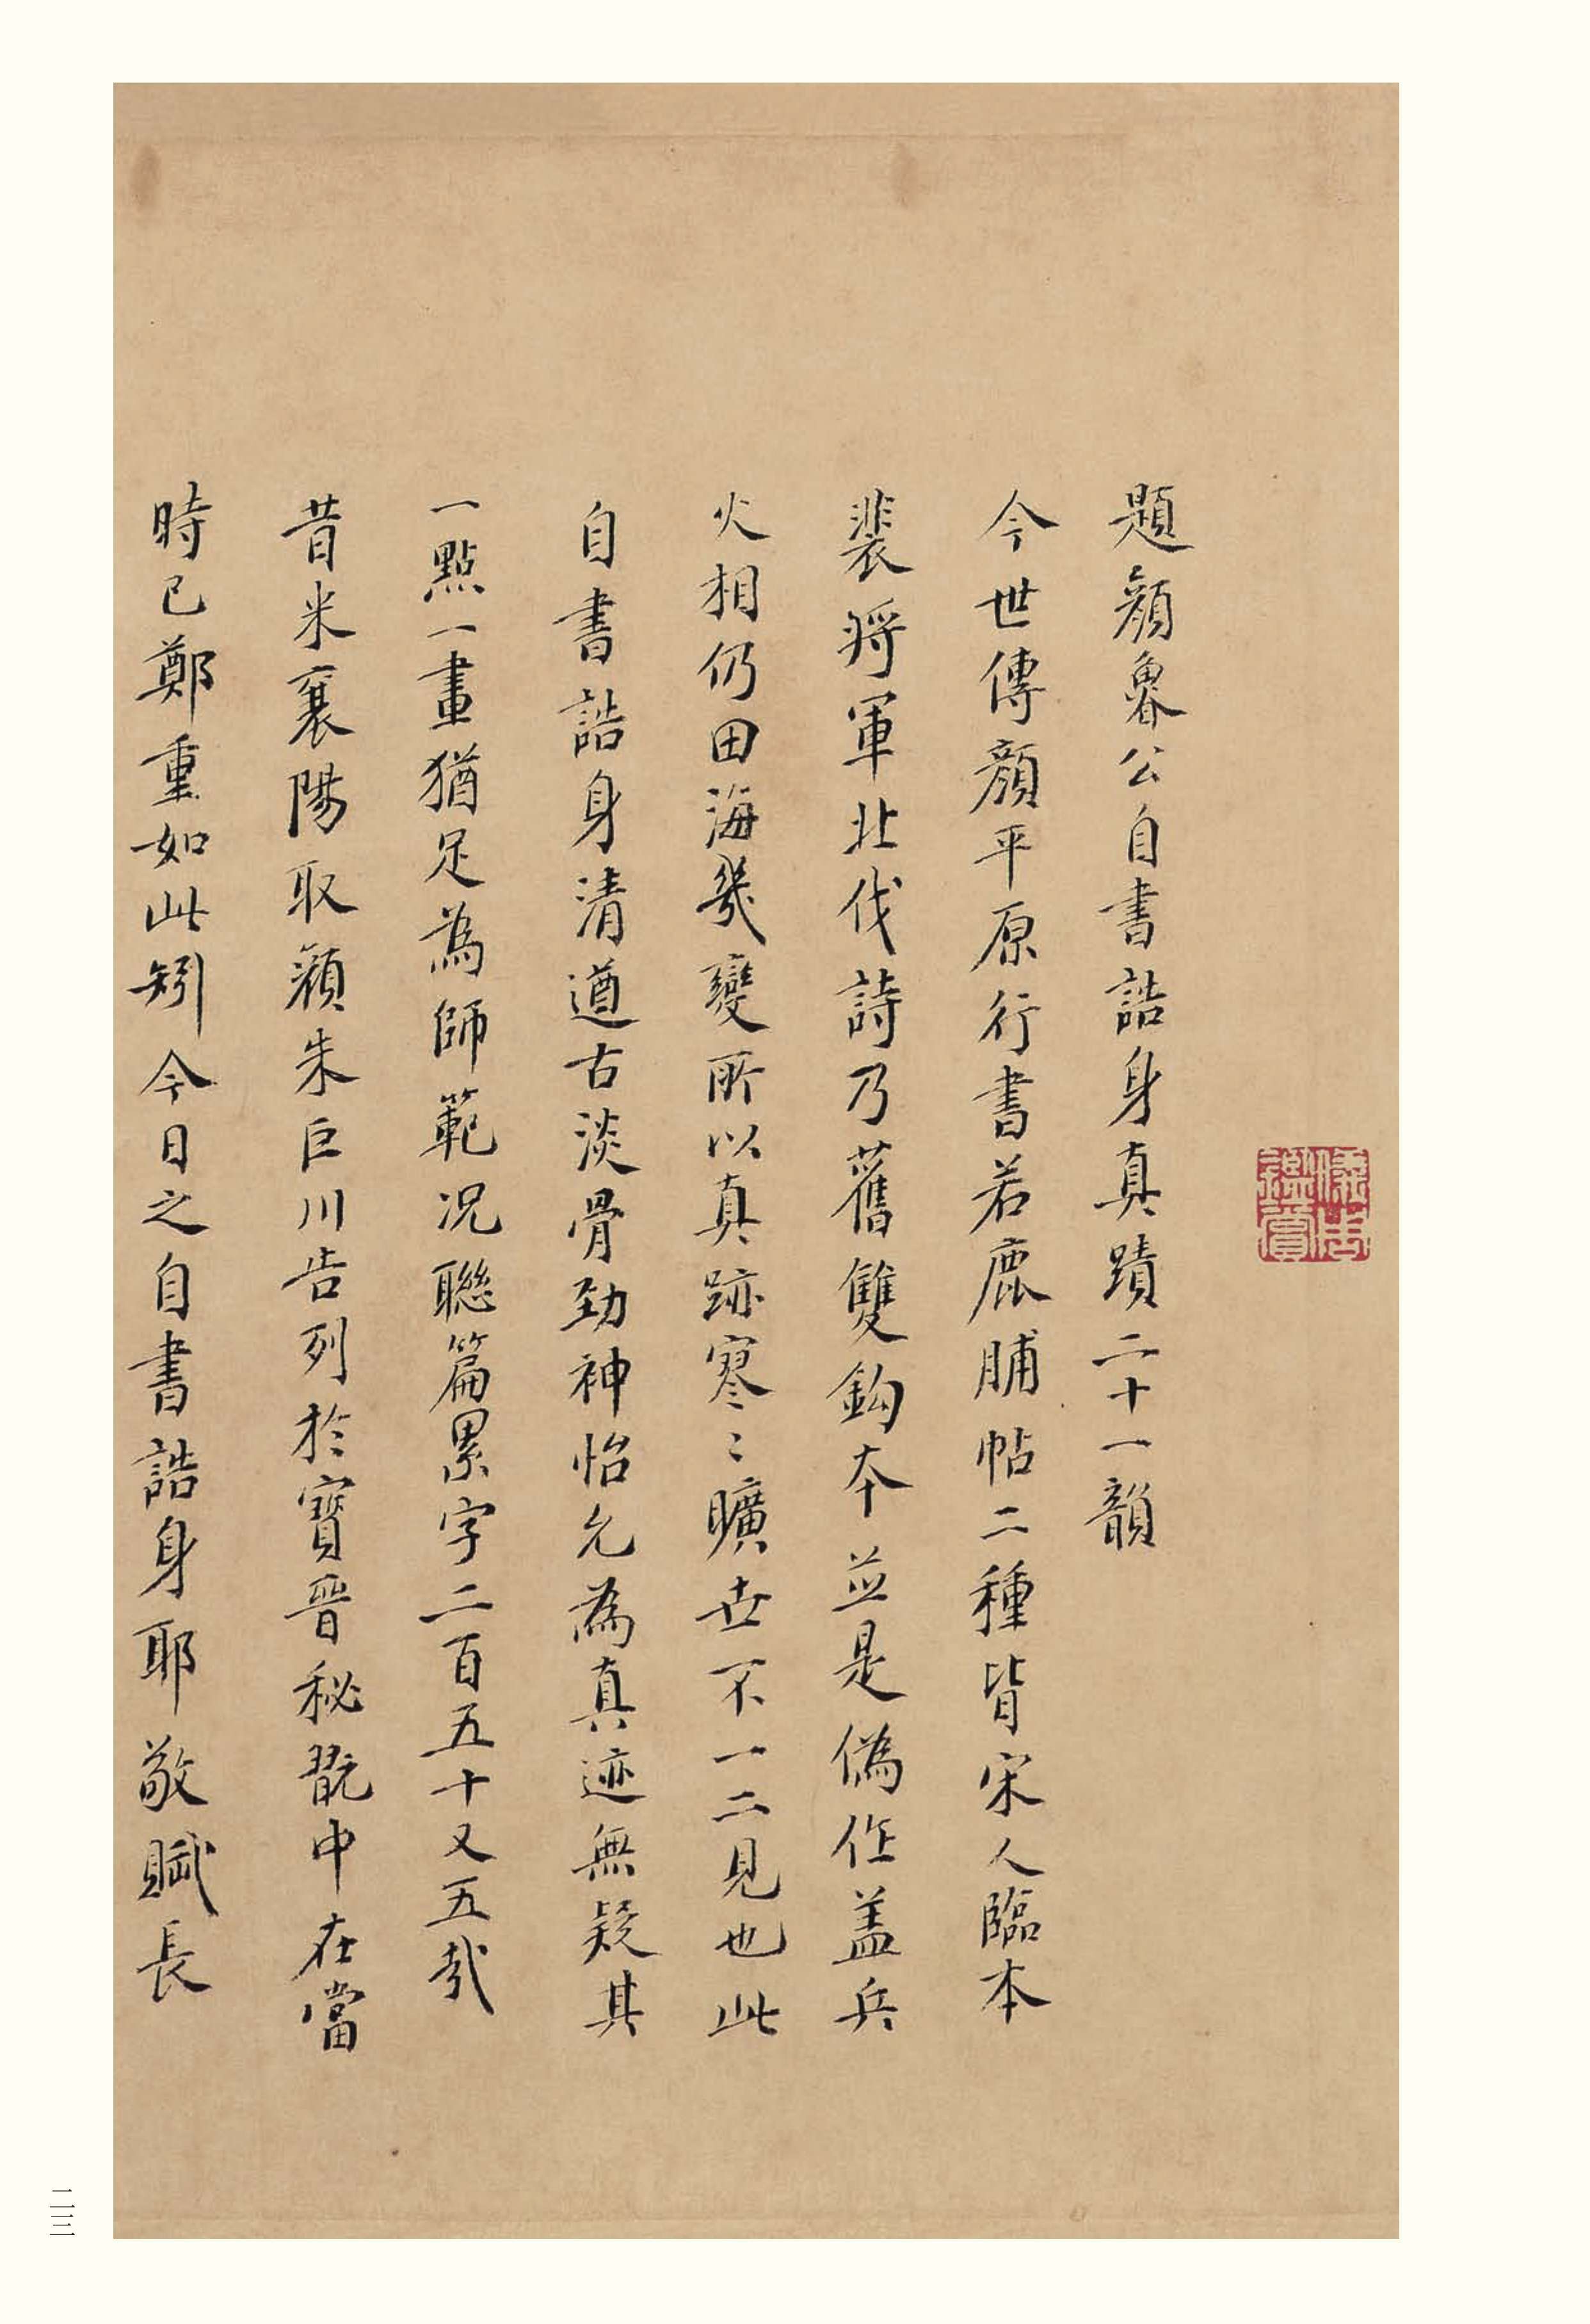 題顏魯公自書誥身真蹟二十一韻
今世傳顏平原行書若鹿脯帖二種皆宋人臨本
裴將軍北伐詩乃舊雙鈎本並是偽作蓋兵
火相仍田海幾變所以真跡寥〻曠世不一二見也此
自書誥身清遒古淡骨勁神怡允為真迹無疑其
一點一畫猶足為師範况聯篇累字二百五十又五哉
昔米襄陽取顏朱巨川告列於寶晉秘翫中在當
時已鄭重如此矧今日之自書誥身耶敬賦長
二三